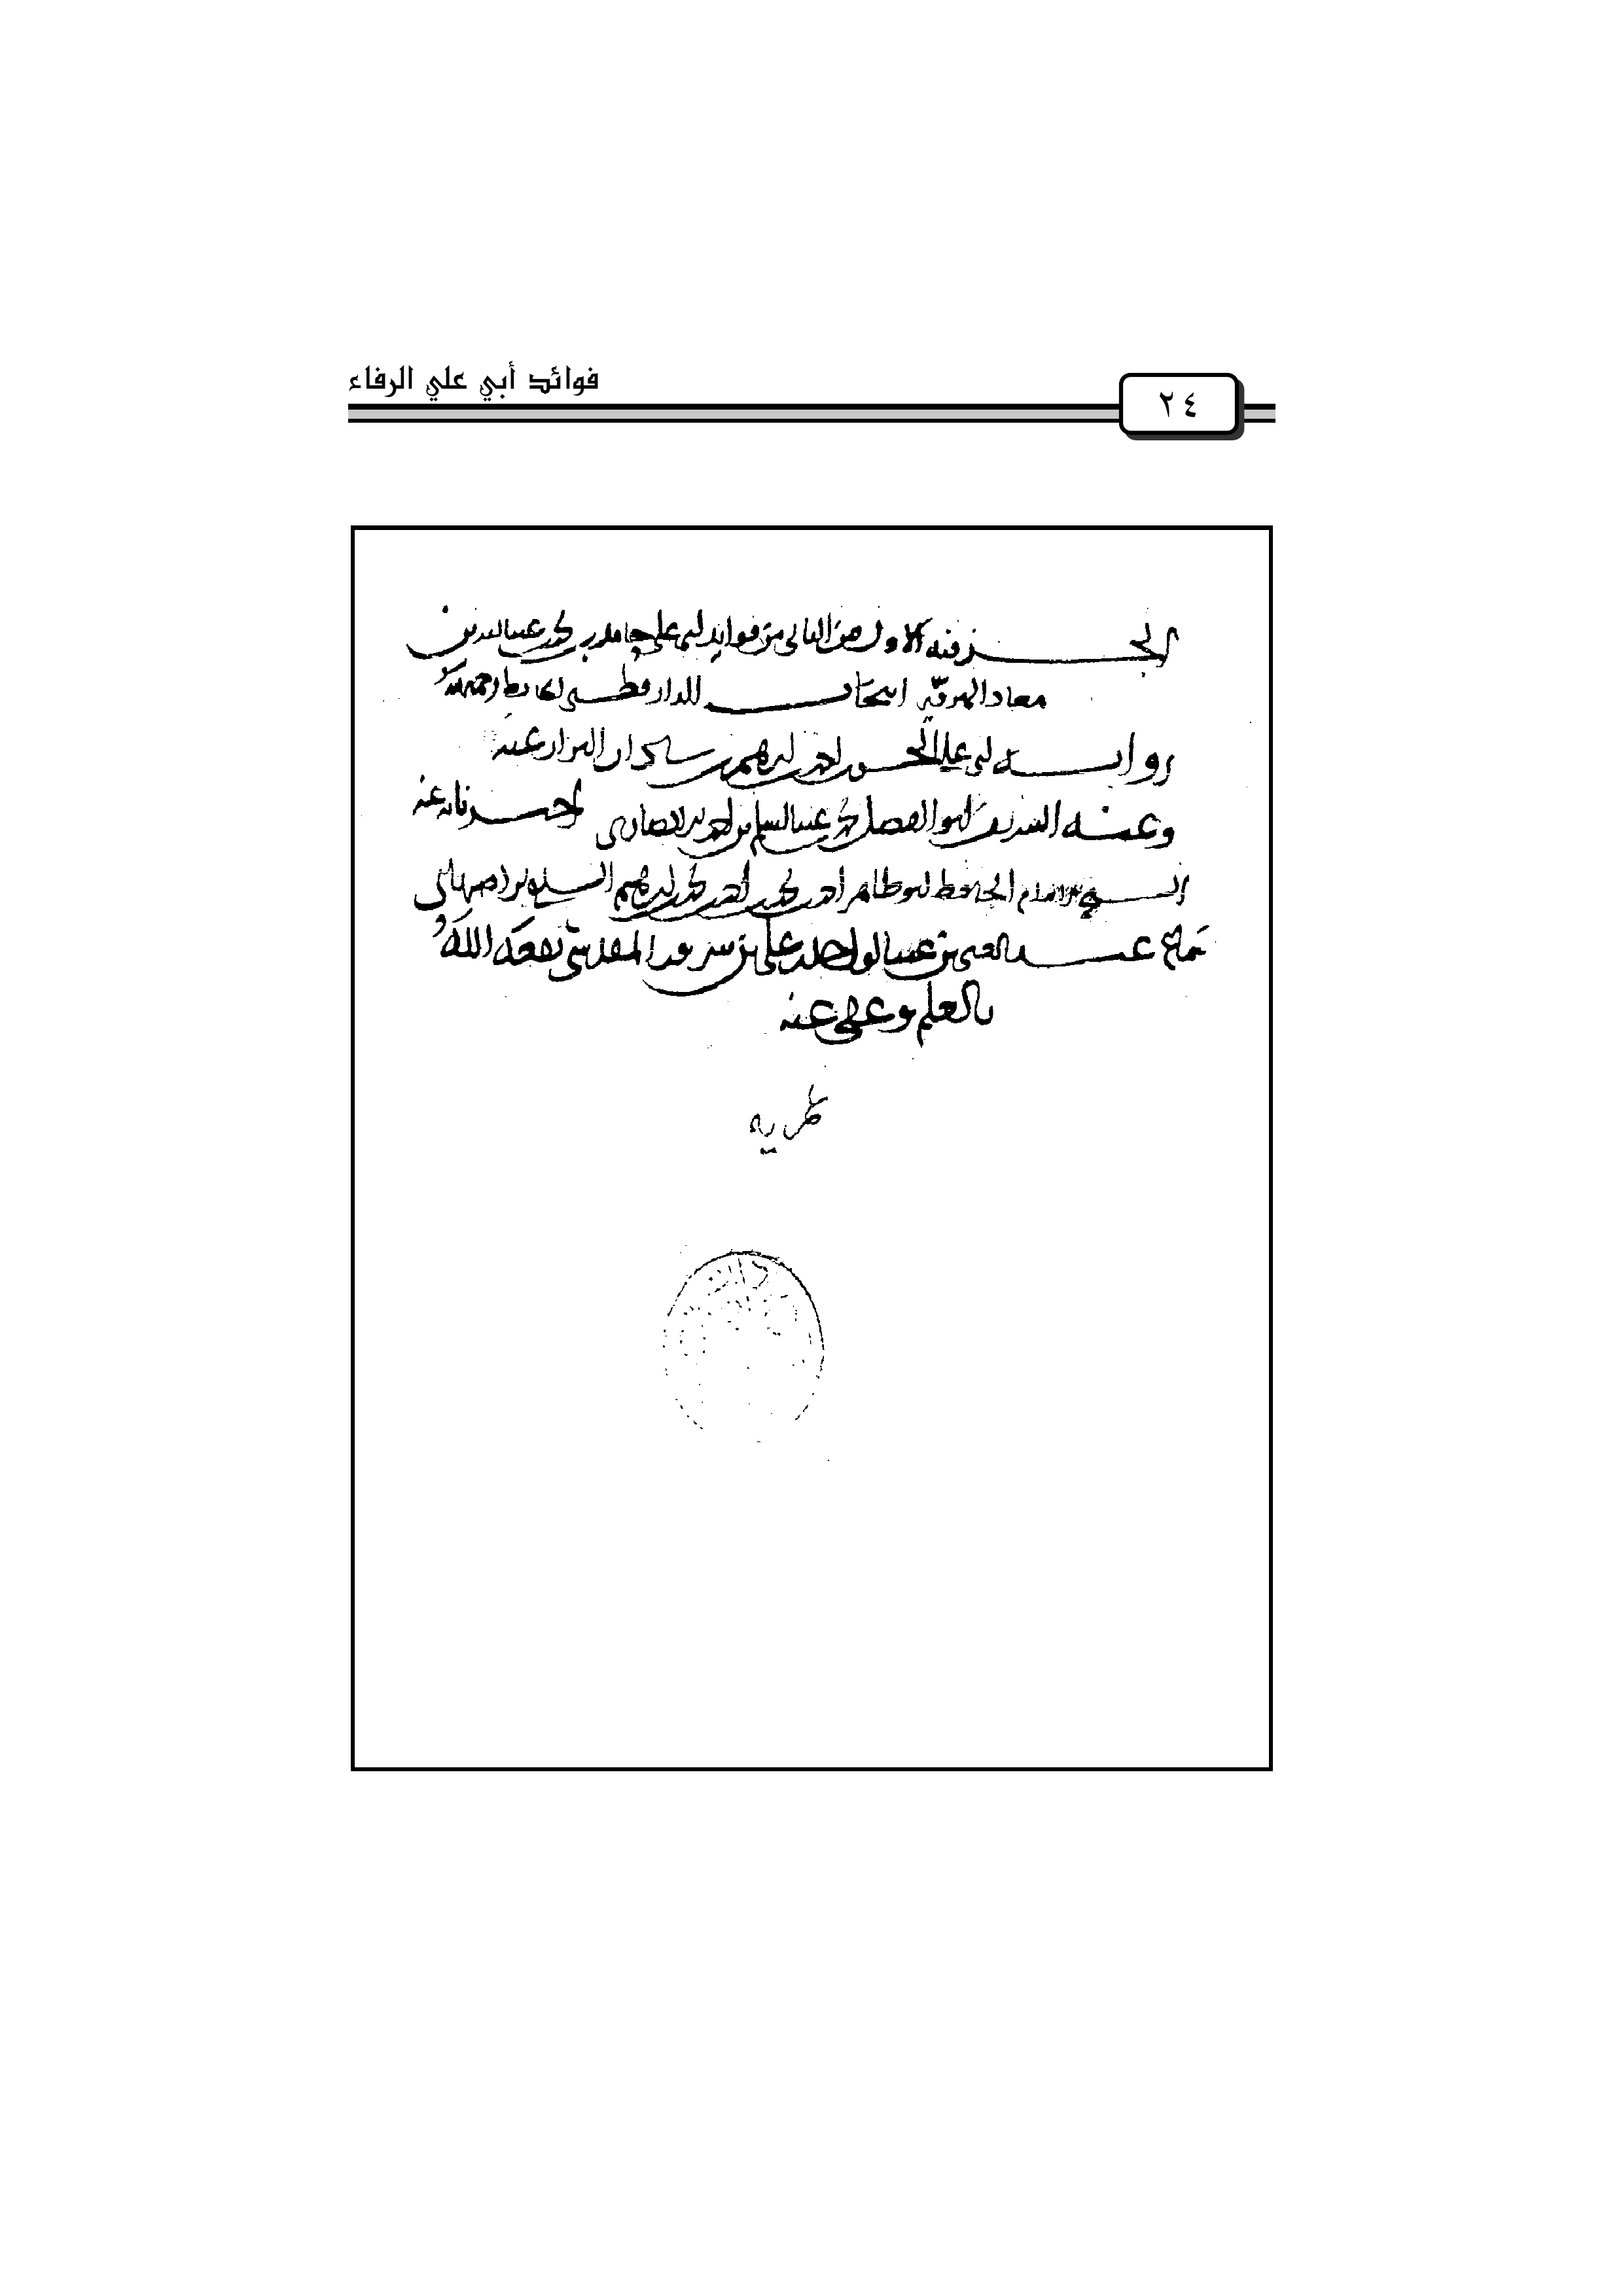 فوائد أبي علي الرفاء
٢٤
الجـــزء فيه الاول من الثانى من فوايد ابى على حامد بن محمد بن عبدالله بن
معاد الهروى انتخاب الدارقطنى الحافظ رحمه الله
روايـــه ابى على الحسن بن احمد بن ابرهيم بن شادان البزاز عنه
وعنه الشريف ابو الفضل محمد بن عبدالسلم بن احمد الانصارى
اخبرنا به عنه
الشيخ الامام الحافظ ابو طاهر احمد بن محمد بن احمد بن محمد بن ابرهيم السلفى الاصبهانى
سماع عبد الغنى بن عبدالواحد بن على بن سرور المقدسى نفعه الله
بالعلم وعفى عنه